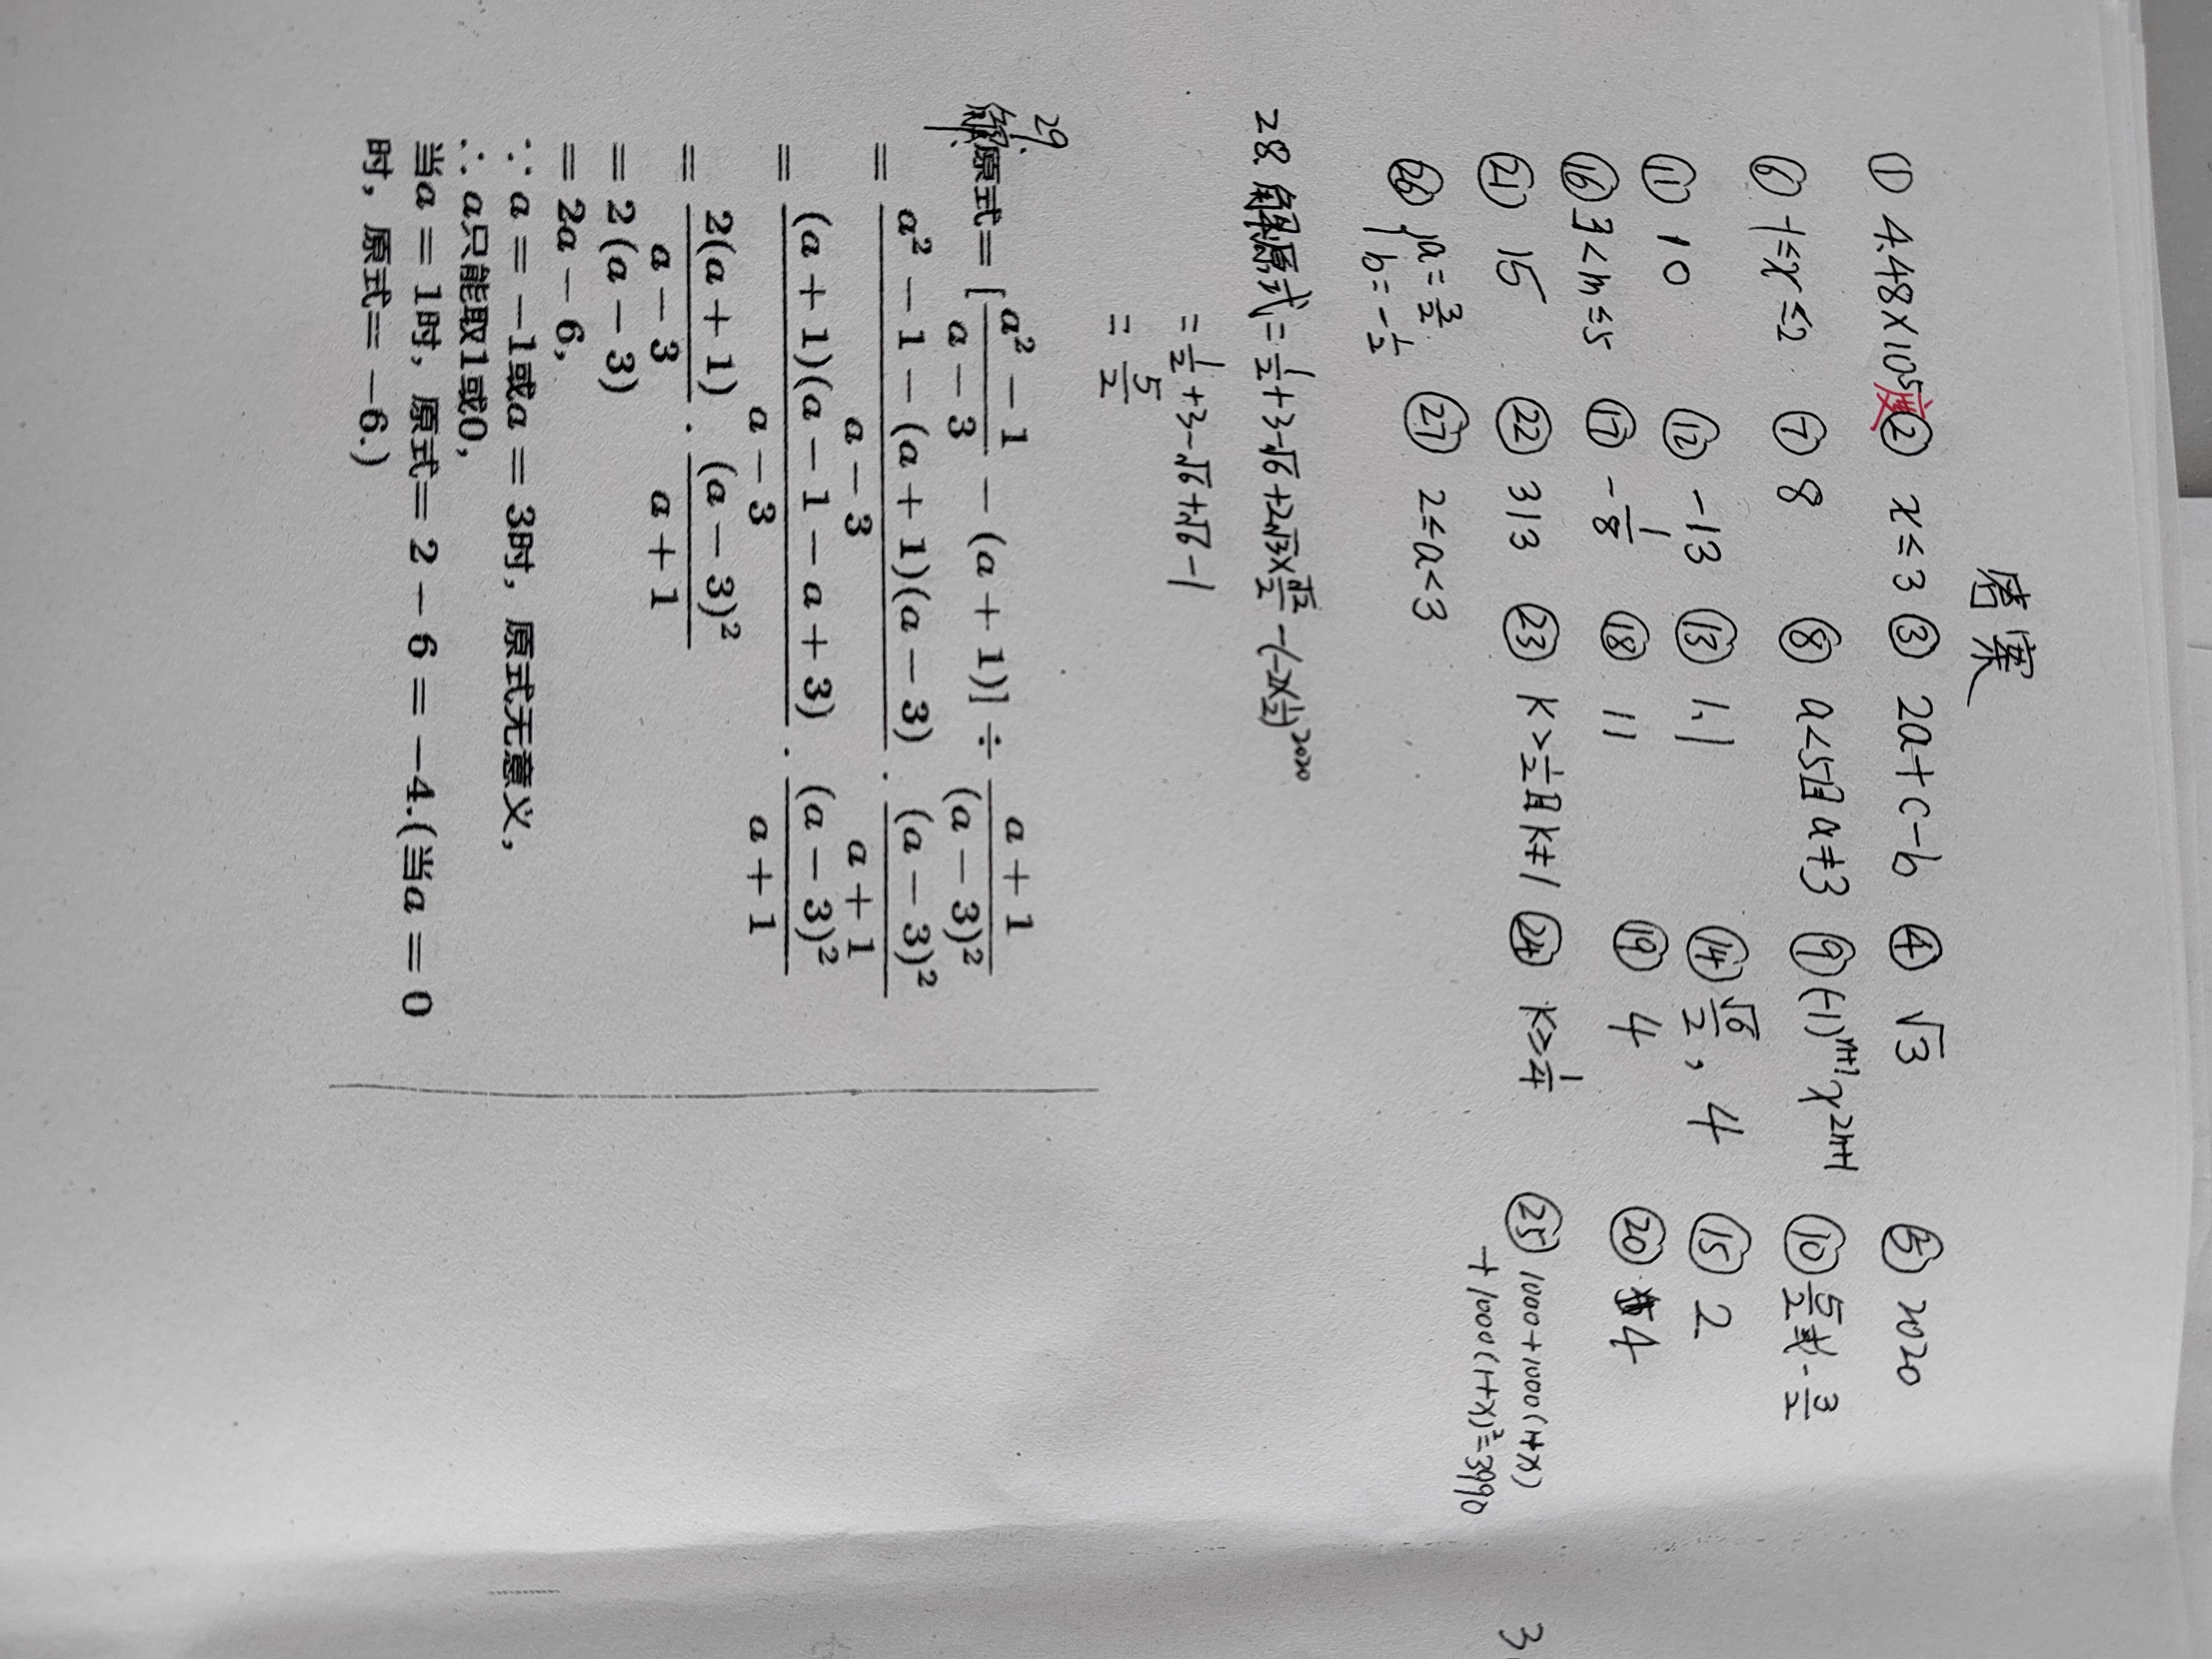 答案
① 4.48×10⁵度 ② x≤3 ③ 2a+c-b ④ √3 ⑤ 2020
⑥ -1≤x≤2 ⑦ 8 ⑧ a<5且a≠3 ⑨ (-1)ⁿ⁺¹x²ⁿ⁺¹ ⑩ 5/2或-3/2
⑪ 10 ⑫ -13 ⑬ 1,1 ⑭ √6/2, 4 ⑮ 2
⑯ 3<m≤5 ⑰ -1/8 ⑱ 11 ⑲ 4 ⑳ 4
㉑ 15 ㉒ 313 ㉓ k>1/2且k≠1 ㉔ k>1/4 ㉕ 1000+1000(1+x)
+1000(1+x)²=3990
㉖ {a=3/2 ㉗ 2≤a<3
b=-1/2
28. 解:原式=1/2+3-√6+2√3×√2/2-(-2×1/2)²⁰²⁰
=1/2+3-√6+√6-1
=5/2
29.
解:原式=[(a²-1)/(a-3)-(a+1)]÷(a+1)/(a-3)²
=(a²-1-(a+1)(a-3))/(a-3)·(a-3)²/(a+1)
=(a+1)(a-1-a+3)/(a-3)·(a-3)²/(a+1)
=2(a+1)/(a-3)·(a-3)²/(a+1)
=2(a-3)
=2a-6,
∵a=-1或a=3时,原式无意义,
∴a只能取1或0,
当a=1时,原式=2-6=-4.(当a=0
时,原式=-6.)